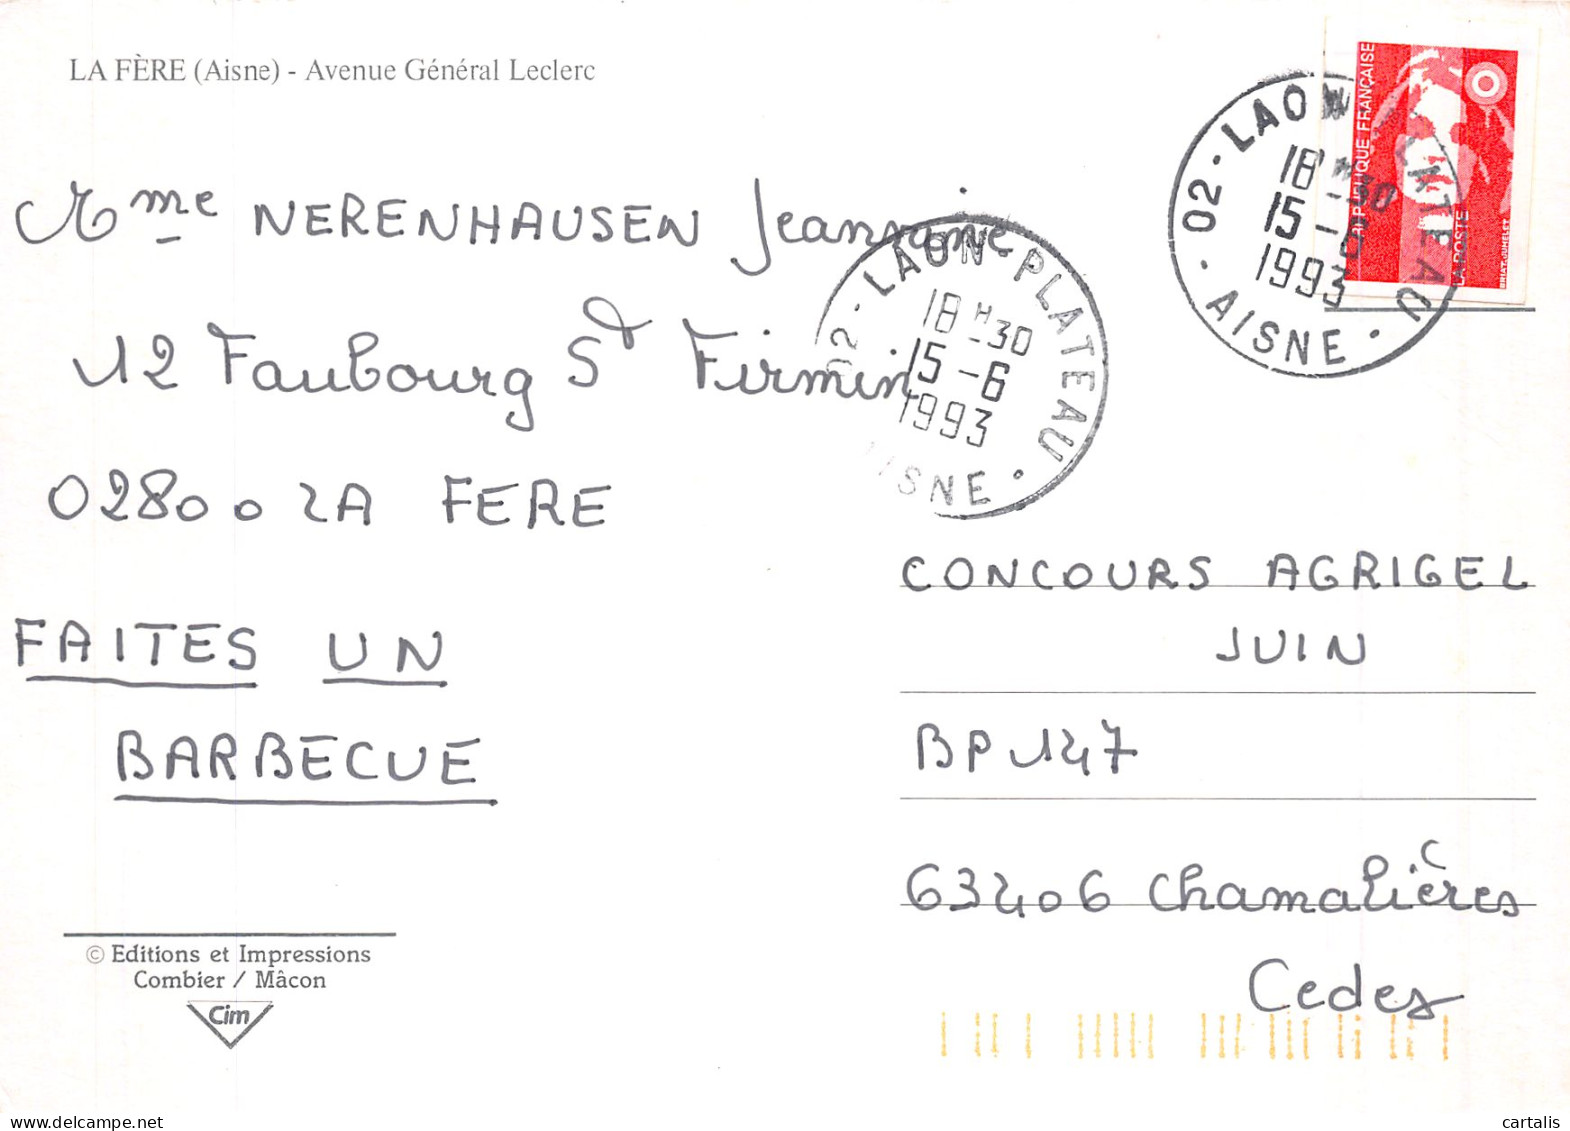 LA FÈRE (Aisne) - Avenue Général Leclerc
RÉPUBLIQUE FRANÇAISE
LA POSTE
BRIAT-JUMELET
02 - LAON PLATEAU
18 H -30
15 -6
1993
AISNE
Mme NERENHAUSEN Jeannine
02 - LAON PLATEAU
18 H -30
15 -6
1993
AISNE
12 Faubourg St Firmin
02800 LA FERE
FAITES UN
BARBECUE
CONCOURS AGRIGEL
JUIN
BP 147
63406 Chamalières
Cedex
© Editions et Impressions
Combier / Mâcon
Cim
cartalis